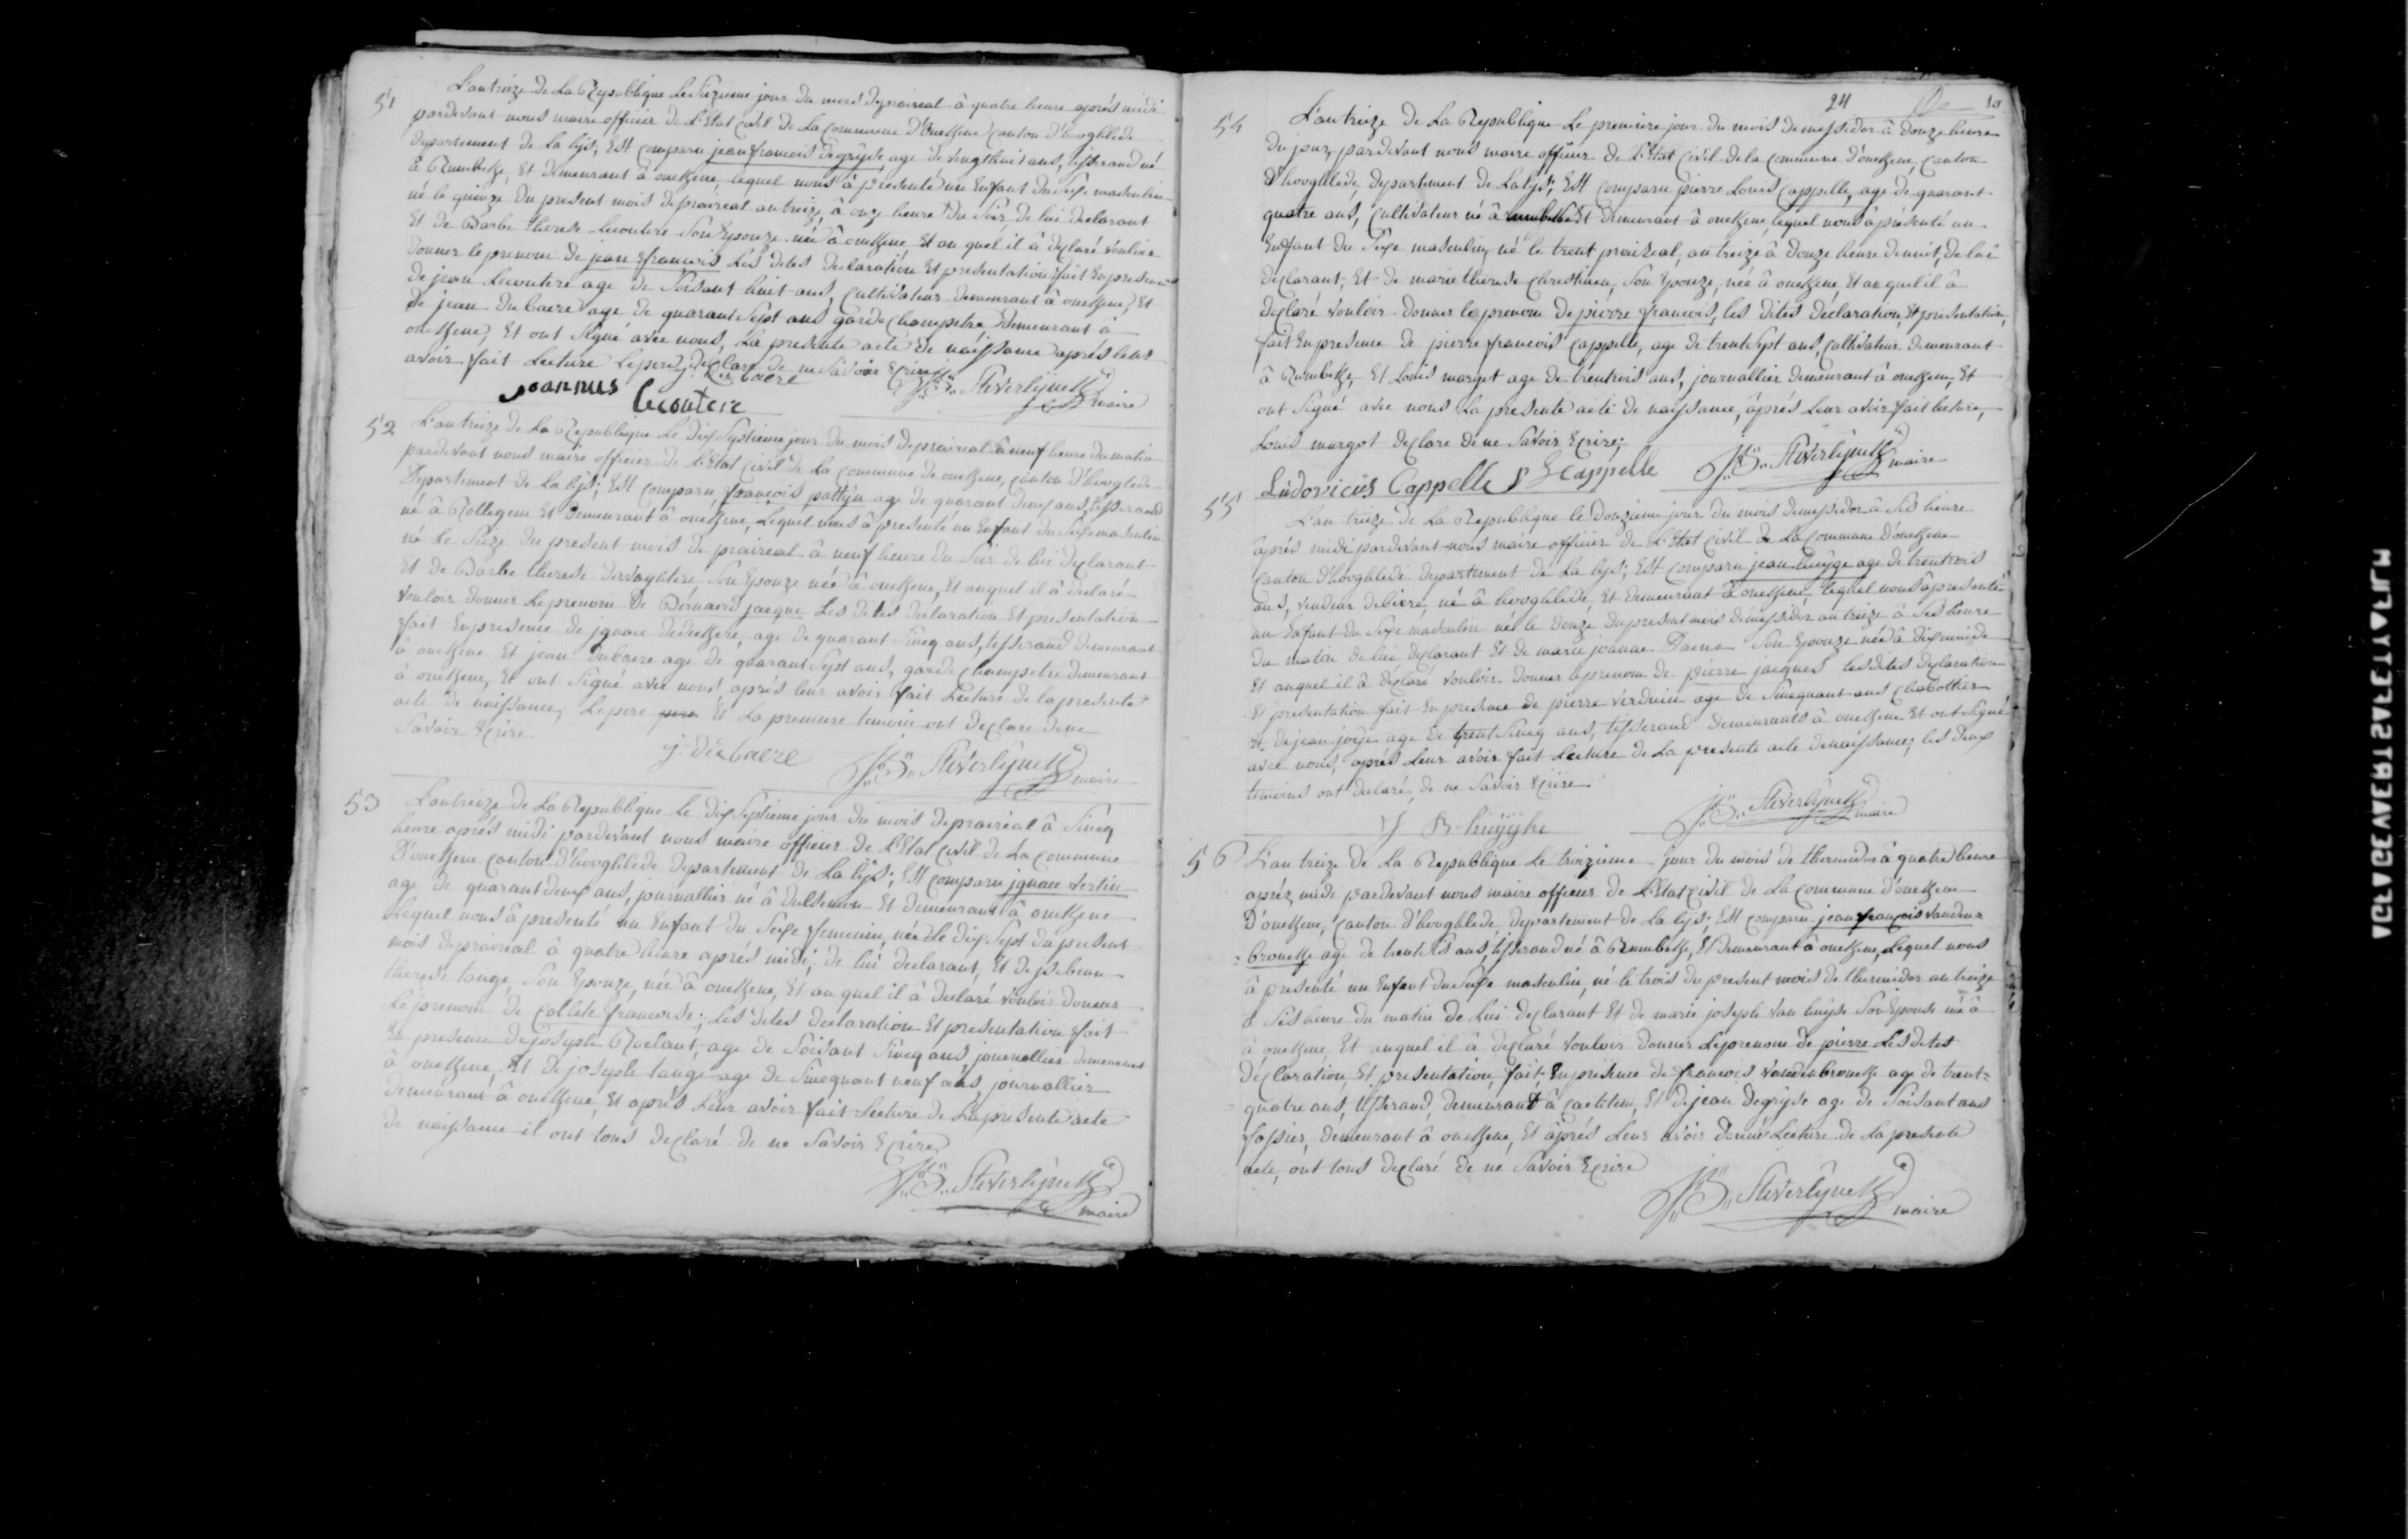 51
L'an treize de La Republique Le Seizieme jour du mois de praireal à quatre heure après midi
pardevant nous maire officier de L'Etat civil de La Commune d'ouekene Canton d'hooghlede
departement de La lys; Est comparu jean francois degryse age de vingthuit ans, tisserand né
à Rumbeke, Et demeurant à ouekene, lequel nous à presenté un Enfant du Sexe masculin
né le quinze du present mois de praireal an treize, à onze heure du Soir de lui declarant
Et de Barbe therese Lecoutere Son Epouze née à ouekene Et au quel il à declaré vouloir
donner le prenom de jean francois Les dites declaration Et presentation fait En presence
de jean Lecoutere age de Soisant huit ans, Cultivateur demeurant à ouekene, Et
de jean du baere age de quarant Sept ans garde Champetre demeurant à
ouekene, Et ont Signé avec nous, La presente acte de naissance après leur
avoir fait Lecture Le pere declare de ne Savoir Ecrire
j. De baere
joannus Lecoutere
J: B: Steverlynck maire
52
L'an treize de La Republique Le dix Septieme jour du mois de praireal à neuf heure du matin
pardevant nous maire officier de L'Etat Civil de La Commune de ouekene, Canton d'hooglede
Departement de La lys; Est comparu françois pattyn age de quarant deux ans, tisserand
né à Rollegem Et demeurant à ouekene, Lequel nous à presenté un Enfant du Sexe masculin
né Le Seize du present mois de praireal à neuf heure du Soir de lui declarant
Et de Barbe therese Son Epouze née à ouekene, Et auquel il à declaré
vouloir donner Le prenom de Bernard jacque Les dites declaration Et presentation
fait En presence de ignace age de quarant Sincq ans, tisserand demeurant
à ouekene Et jean dubaere age de quarant Sept ans, garde Champetre demeurant
à ouekene, Et ont Signé avec nous, après leur avoir fait Lecture de la presente
acte de naissance, Le pere Et La premiere temoin ont declare de ne
Savoir Ecrire
j. de baere
J: B: Steverlynck maire
53
L'an treize de La Republique Le dix Septieme jour du mois de praireal à Sincq
heure après midi pardevant nous maire officier de L'Etat Civil de La Commune
D'ouekene Canton d'hooghlede Departement de La lys; Est comparu ignace vertin
age de quarant deux ans, journallier né à Et demeurant à ouekene
Lequel nous à presenté un Enfant du Sexe femenin, née Le dix Sept du present
mois de praireal à quatre heure après midi, de lui declarant, Et de
therese tange, Son Epouze, née à ouekene, Et au quel il à declaré vouloir donner
Le prenom de Collete francoise; Les dites declaration Et presentation fait
En presence de joseph Roelant, age de Soisant Sincq ans, journallier demeurant
à ouekene, Et de joseph tange age de Sincquant neuf ans, journallier
demeurant à ouekene, Et après Leur avoir fait Lecture de La presente acte
de naissance il ont tous declaré de ne Savoir Ecrire
J: B: Steverlynck maire
24
10
54
L'an treize de La Republique Le premiere jour du mois de messidor à douze heure
du jour, pardevant nous maire officier de L'Etat Civil de la Commune d'ouekene, Canton
d'hooghlede, Departement de La lys; Est comparu pierre Louis Cappelle, age de quarant
quatre ans, Cultivateur né à Et demeurant à ouekene, lequel nous à présenté un
Enfant du Sexe masculin, né le trent praireal, an treize à douze heure de nuit, de lui
declarant, Et de marie therese Christiaen, Son Epouze, née à ouekene, Et auquel il à
declaré vouloir donner le prenom de pierre francois, les dites declaration, Et presentation,
fait En presence de pierre francois Cappelle, age de trent Sept ans, Cultivateur demeurant
à Rumbeke, Et Louis margot age de trentrois ans, journallier demeurant à ouekene, Et
ont Signé avec nous La presente acte de naissance, après Leur avoir fait lecture,
Louis margot declare de ne Savoir Ecrire;
Ludovicus Cappelle P F Cappelle
J: B: Steverlynck maire
55
L'an treize de La Republique le douzieme jour du mois de messidor à Sis heure
après midi pardevant nous maire officier de L'Etat Civil de La Commune d'ouekene
Canton d'hooghlede departement de La lys; Est comparu jean huyge age de trentrois
ans, vendeur de biere, né à hooghlede Et demeurant à ouekene, lequel nous à presenté
un Enfant du Sexe masculin né le douze du present mois de messidor an treize à Sis heure
du matin de lui declarant Et de marie joanne Daene Son Epouze née à dixmuide
Et auquel il à declaré vouloir donner le prenom de pierre jacques les dites declaration
Et presentation fait En presence de pierre verduin age de Sincquant ans Chabottier
Et de jean joye age de trent Sincq ans, tisserand demeurants à ouekene Et ont Signé
avec nous, après Leur avoir fait Lecture de La presente acte de naissance; les deux
temoins ont declaré, de ne Savoir Ecrire
J B huyghe
J: B: Steverlynck maire
56
L'an treize de La Republique Le troizieme jour du mois de thermidor à quatre heure
après midi pardevant nous maire officier de L'Etat Civil de La Commune d'ouekene
D'ouekene, Canton d'hooghlede, departement de La lys; Est comparu jean françois vanden=
=brouck age de trent Sis ans, tisserand né à Rumbeke, Et demeurant à ouekene, Lequel nous
à presenté un Enfant du Sexe masculin, né le trois du present mois de thermidor an treize
à Sis heure du matin de Lui declarant Et de marie joseph van huyse Son Epouse né à
à ouekene, Et auquel il à declaré vouloir donner Le prenom de pierre Les dites
déclaration, Et presentation, fait En presence de francois vandenbroucke age de trent=
quatre ans, tisserand, demeurant à Cachtem, Et de jean degryse age de Soisant ans
fossier, demeurant à ouekene, Et après Leur avoir donné Lecture de La presente
acte, ont tous declaré de ne Savoir Ecrire
J: B: Steverlynck maire
AGFA-GEVAERT SAFETY FILM